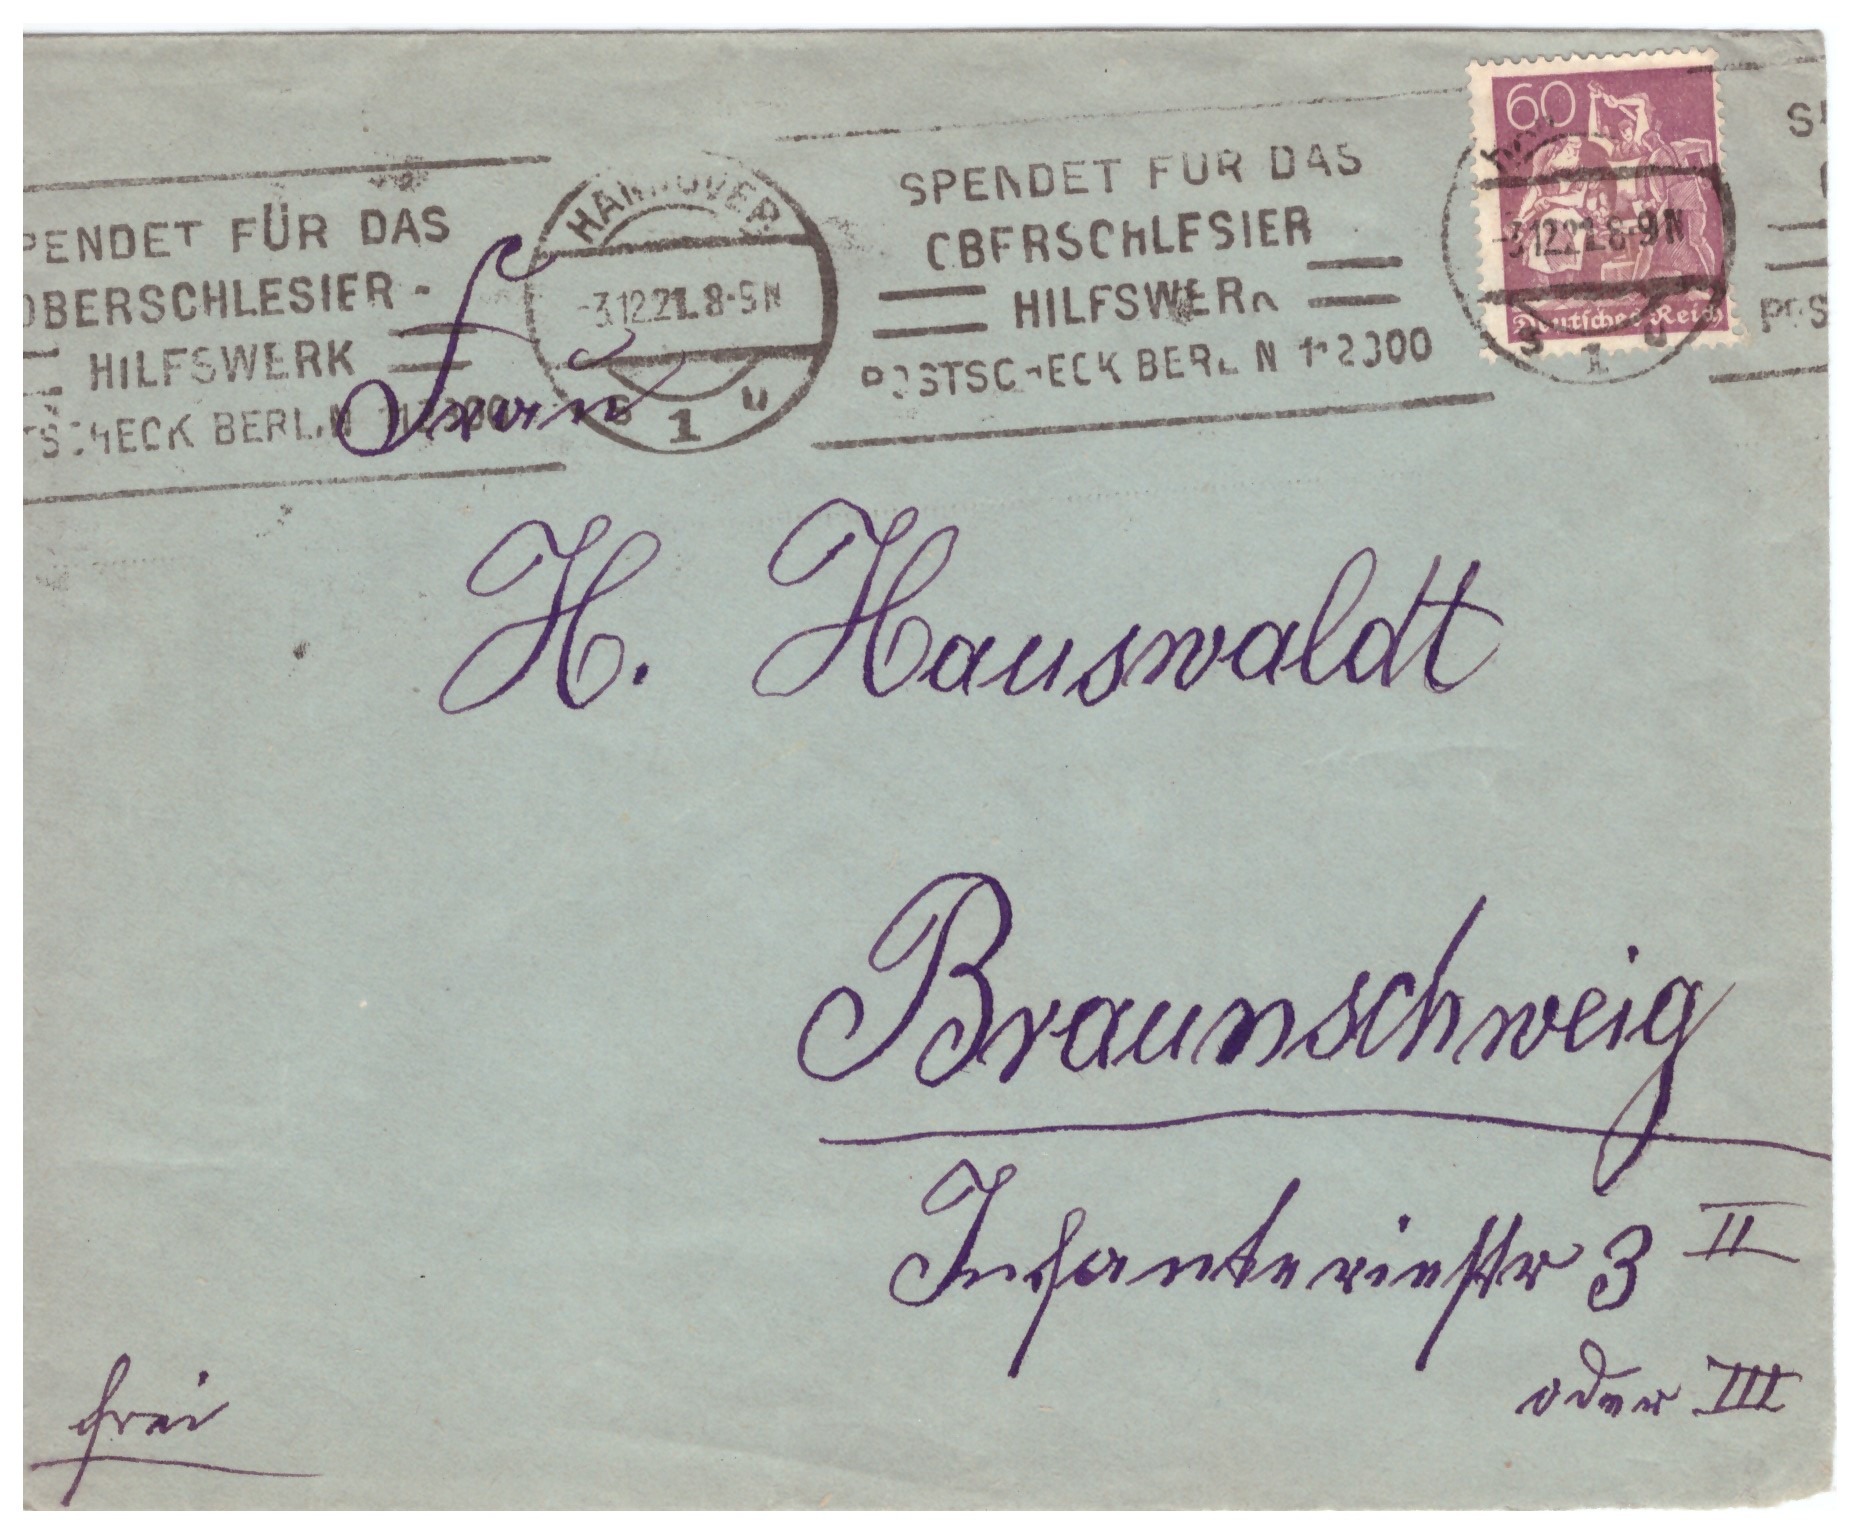 SPENDET FÜR DAS
OBERSCHLESIER-
HILFSWERK
POSTSCHECK BERLIN 112000
HANNOVER
-3.12.21. 8-9 N
S 1 u
SPENDET FÜR DAS
OBERSCHLESIER
HILFSWERK
POSTSCHECK BERLIN 112000
60
-3.12.21. 8-9 N
Deutsches Reich
S 1 u
Herrn
H. Hauswaldt
Braunschweig
Infanteriestr 3 II
oder III
frei